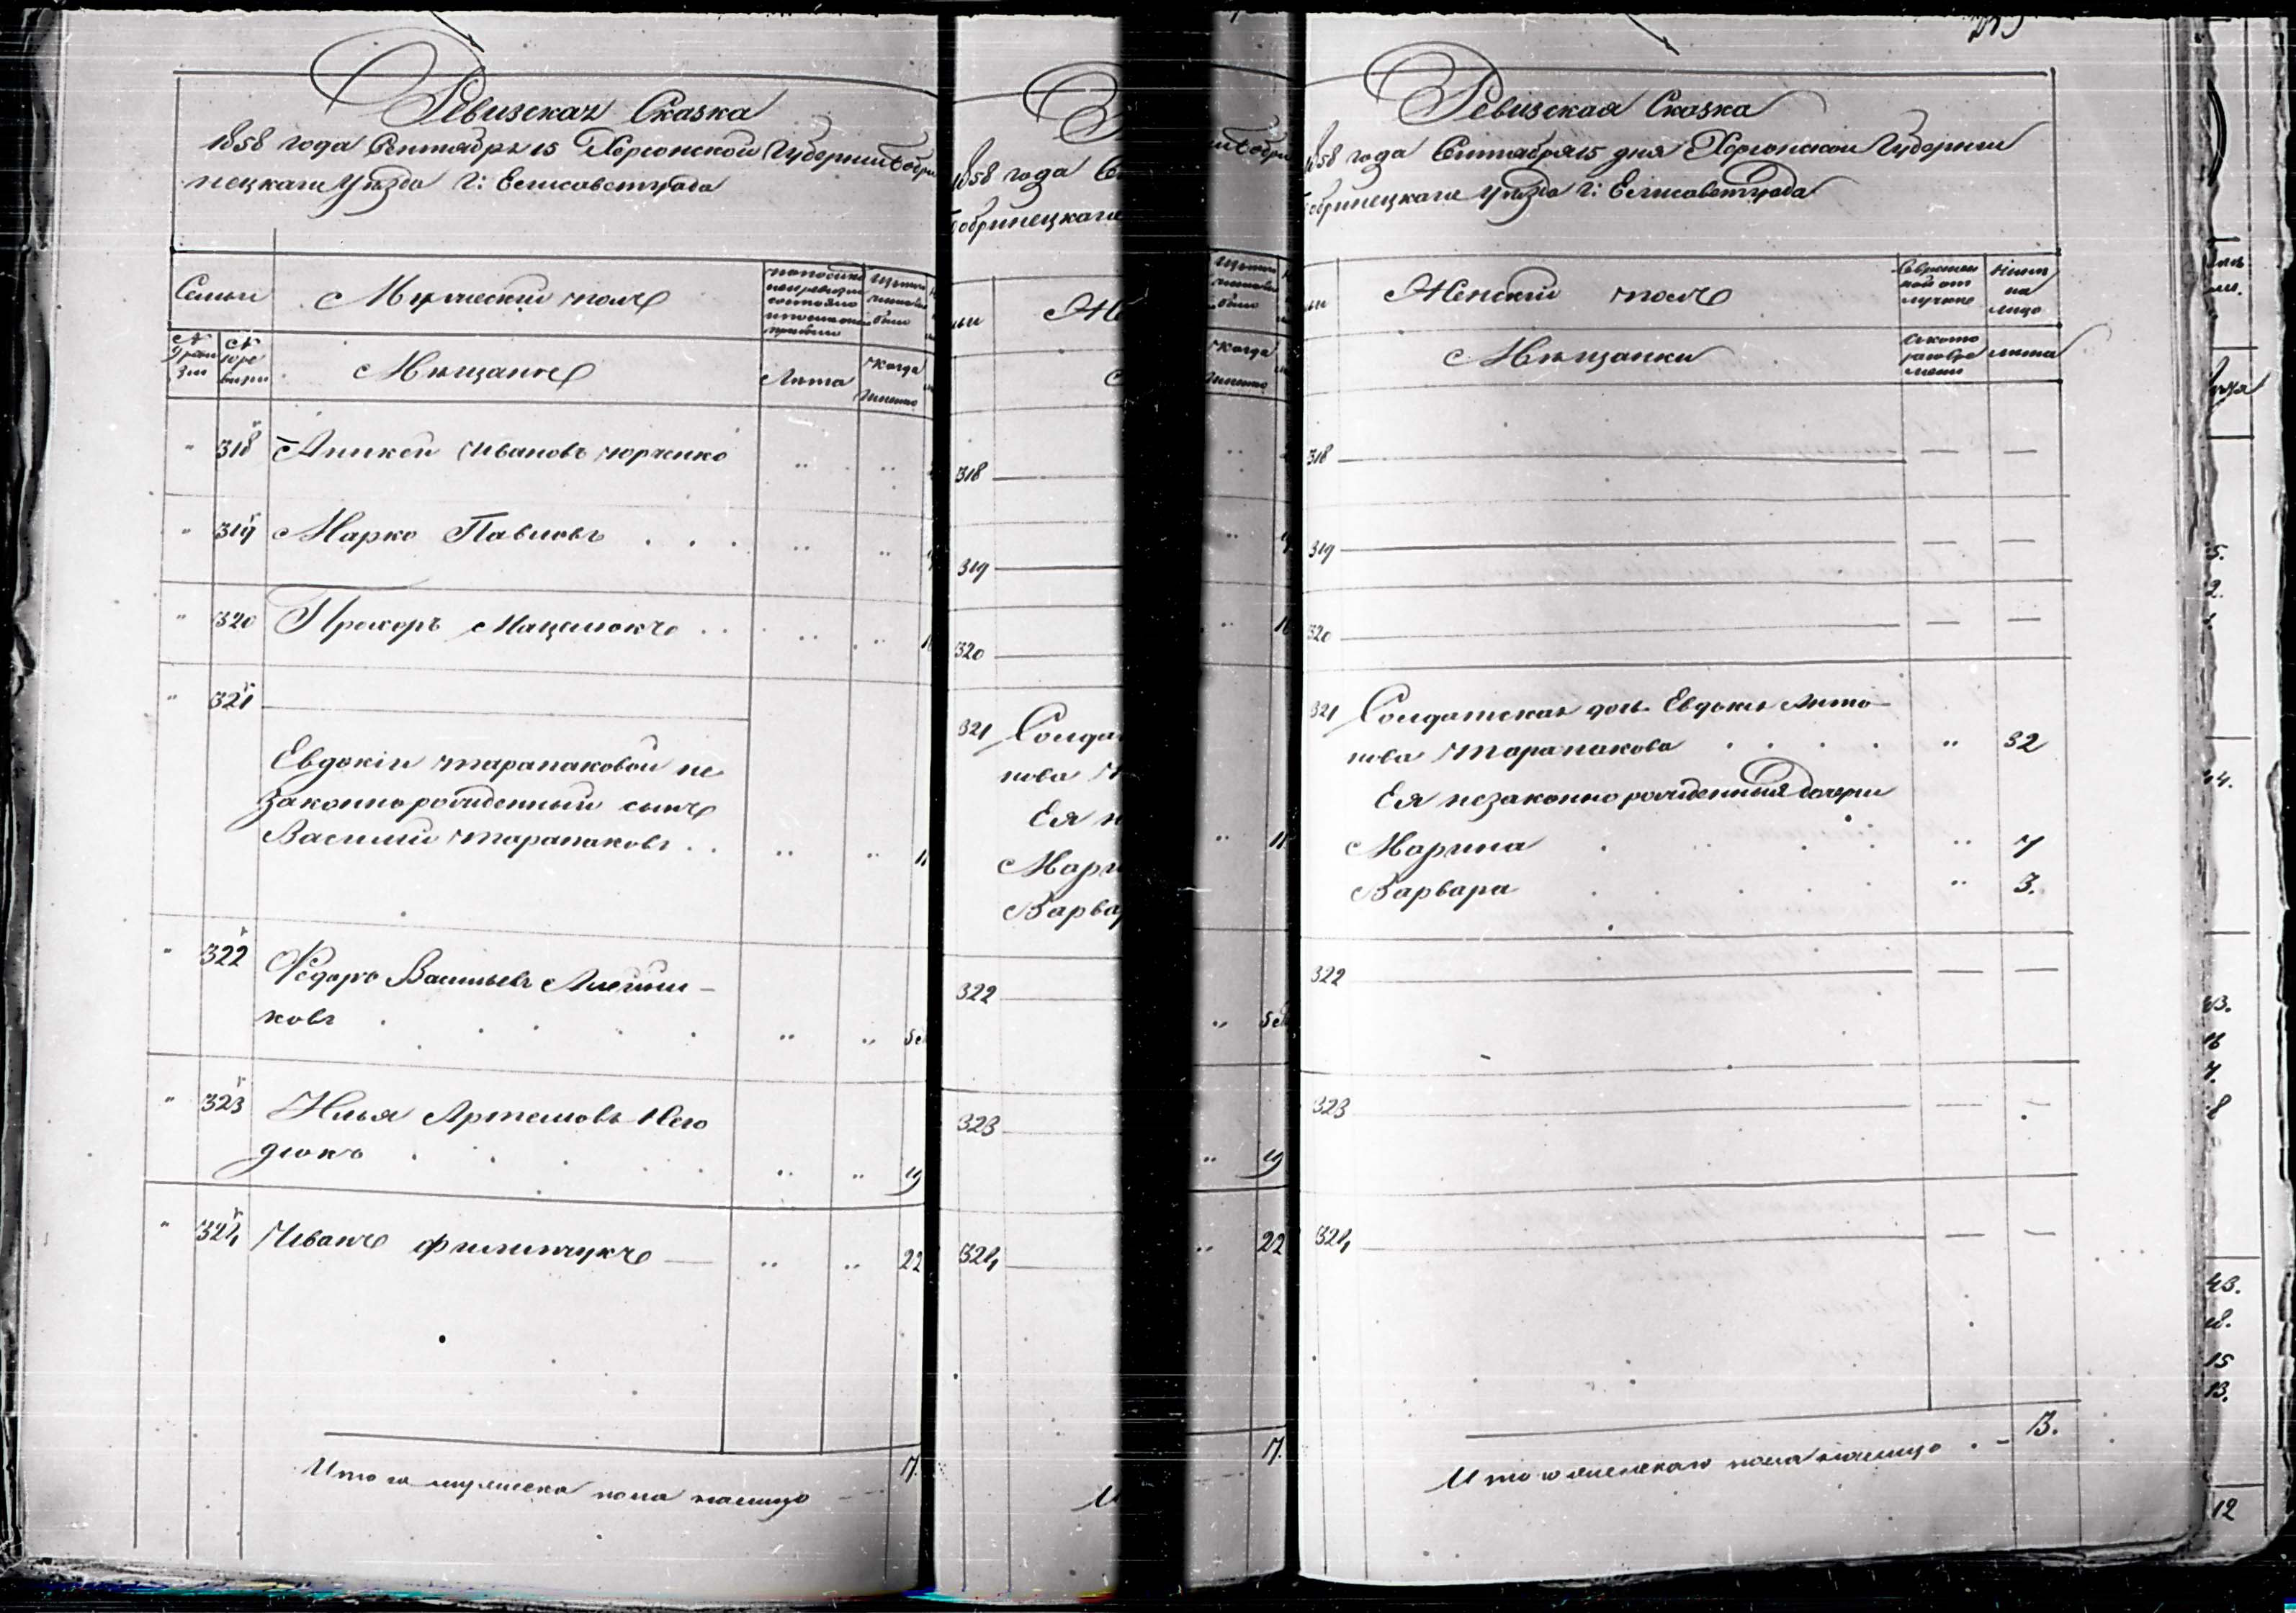 Ревизская Сказка
1858 года Сентября 15 Херсонской Губернии Бобри
нецкаго Уѣзда г: Елисаветграда
Семьи
Мужеский полъ
Мѣщане
Лѣта
Когда
Именно
318 Аникей Ивановъ Юрченко
319 Марко Павловъ
320 Прохоръ Мацалюкъ
321
Евдокіи Тарапаковой не
законнорожденный сынъ
Василий Тарапаковъ
322 Федоръ Васильевъ Алейни-
ковъ
323 Илья Артемовъ Него
дюкъ 19
324 Иванъ Филипчукъ 22
Итого мужеска пола налицо 7.
1858 года Се
Бобринецкаго
318
319
320
321 Солда
нова Т
Ея н
Мари
Варва
322
323 19
324 22
7.
Ревизская Сказка
1858 года Сентября 15 дня Херсонской Губернии
Бобринецкаго Уѣзда г: Елисаветграда
Женский полъ
Во времен
ной от
лучке
Ныне
на
лицо
Мѣщанки
Съкото
раго вре
мени
Лѣта
318
319
320
321 Солдатская дочь Евдокия Анто-
нова Тарапакова 32
Ея незаконнорожденныя дочери
Марина 7
Варвара 3.
322
323
324
3.
Итого женскаго пола налицо